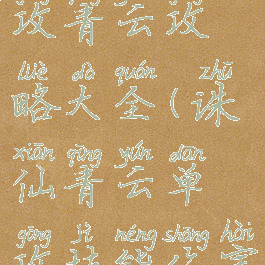 攻青云攻
lüè dà quán zhū
略大全(诛
xiān qīng yún dān
仙青云单
gōng jì néng shāng hài